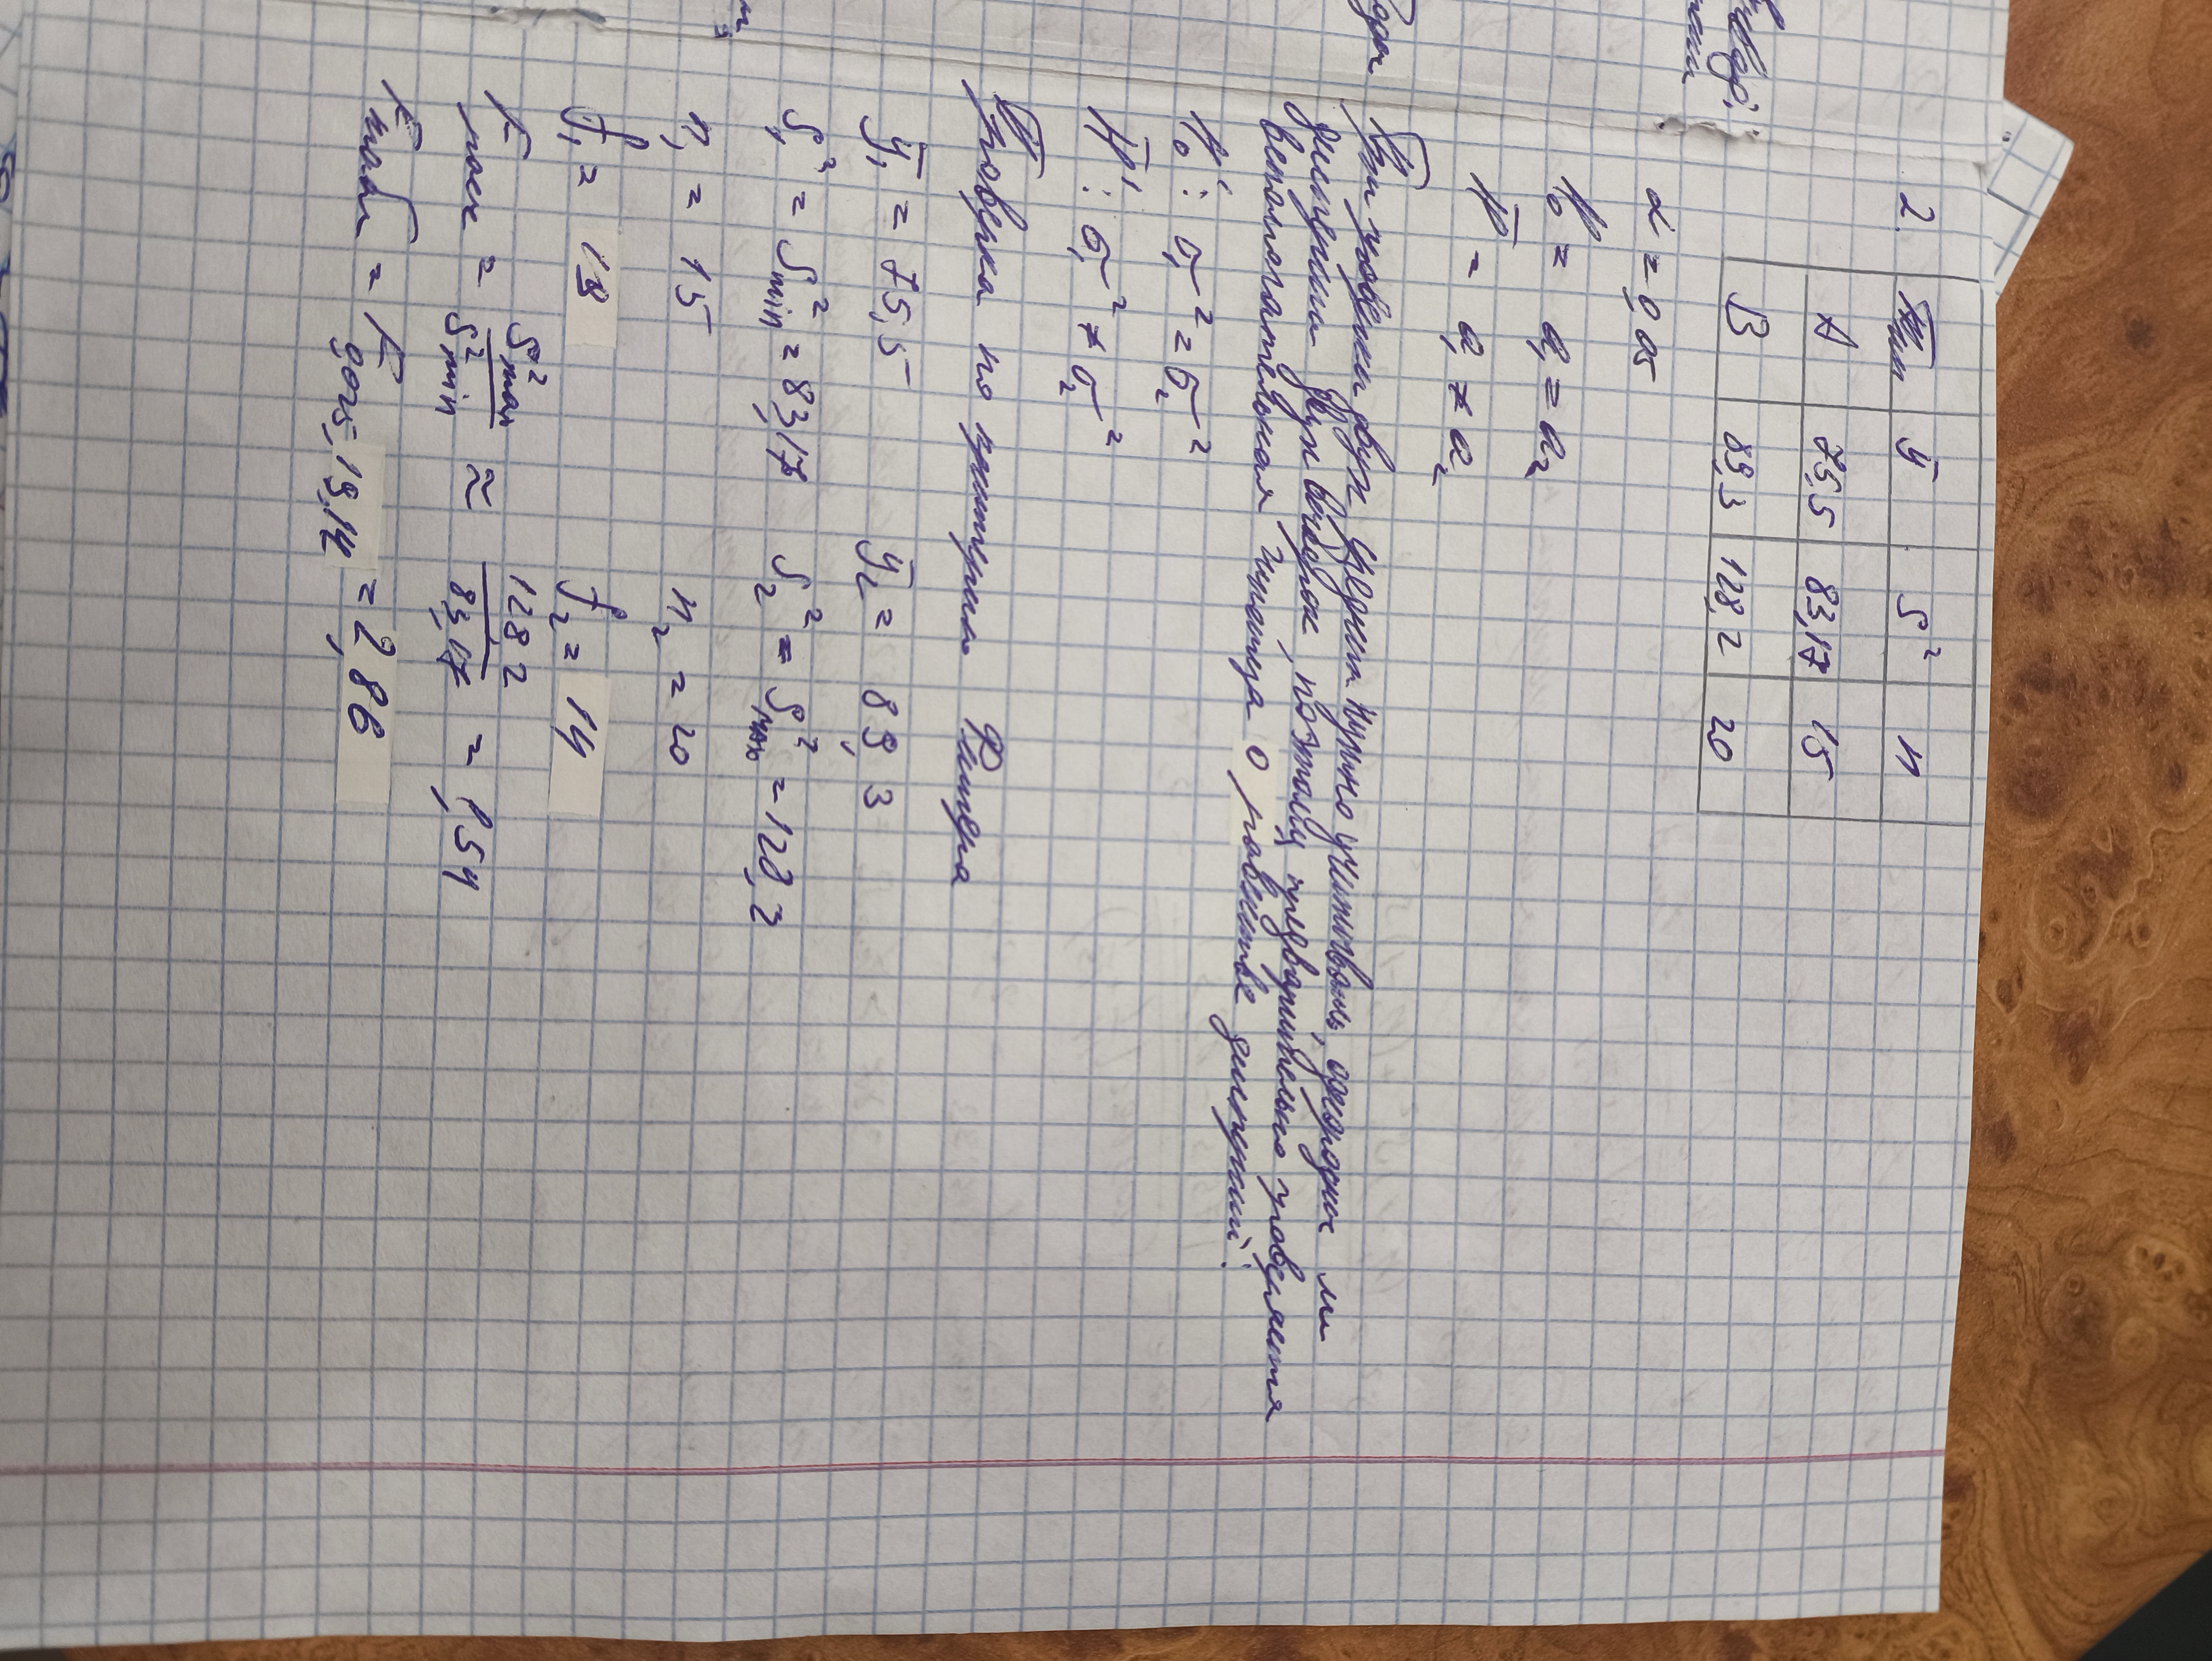 2.
Тип ȳ S² n
A 75,5 83,17 15
B 89,3 128,2 20
α = 0,05
H₀ = a₁ = a₂
H̄ = a₁ ≠ a₂
При проверки двух средних нужно учитывать, однородны ли
дисперсии двух выборок, поэтому предварительно проверяется
вспомогательная гипотеза о равенстве дисперсий:
H₀': σ₁² = σ₂²
H̄': σ₁² ≠ σ₂²
Проверка по критерию Фишера
ȳ₁ = 75,5 ȳ₂ = 89,3
S₁² = S²min = 83,17 S₂² = S²max = 128,2
n₁ = 15 n₂ = 20
f₁ = 19 f₂ = 14
Fрасч = S²max / S²min ≈ 128,2 / 83,17 = 1,54
Fтабл = F0,025;19;14 = 2,86